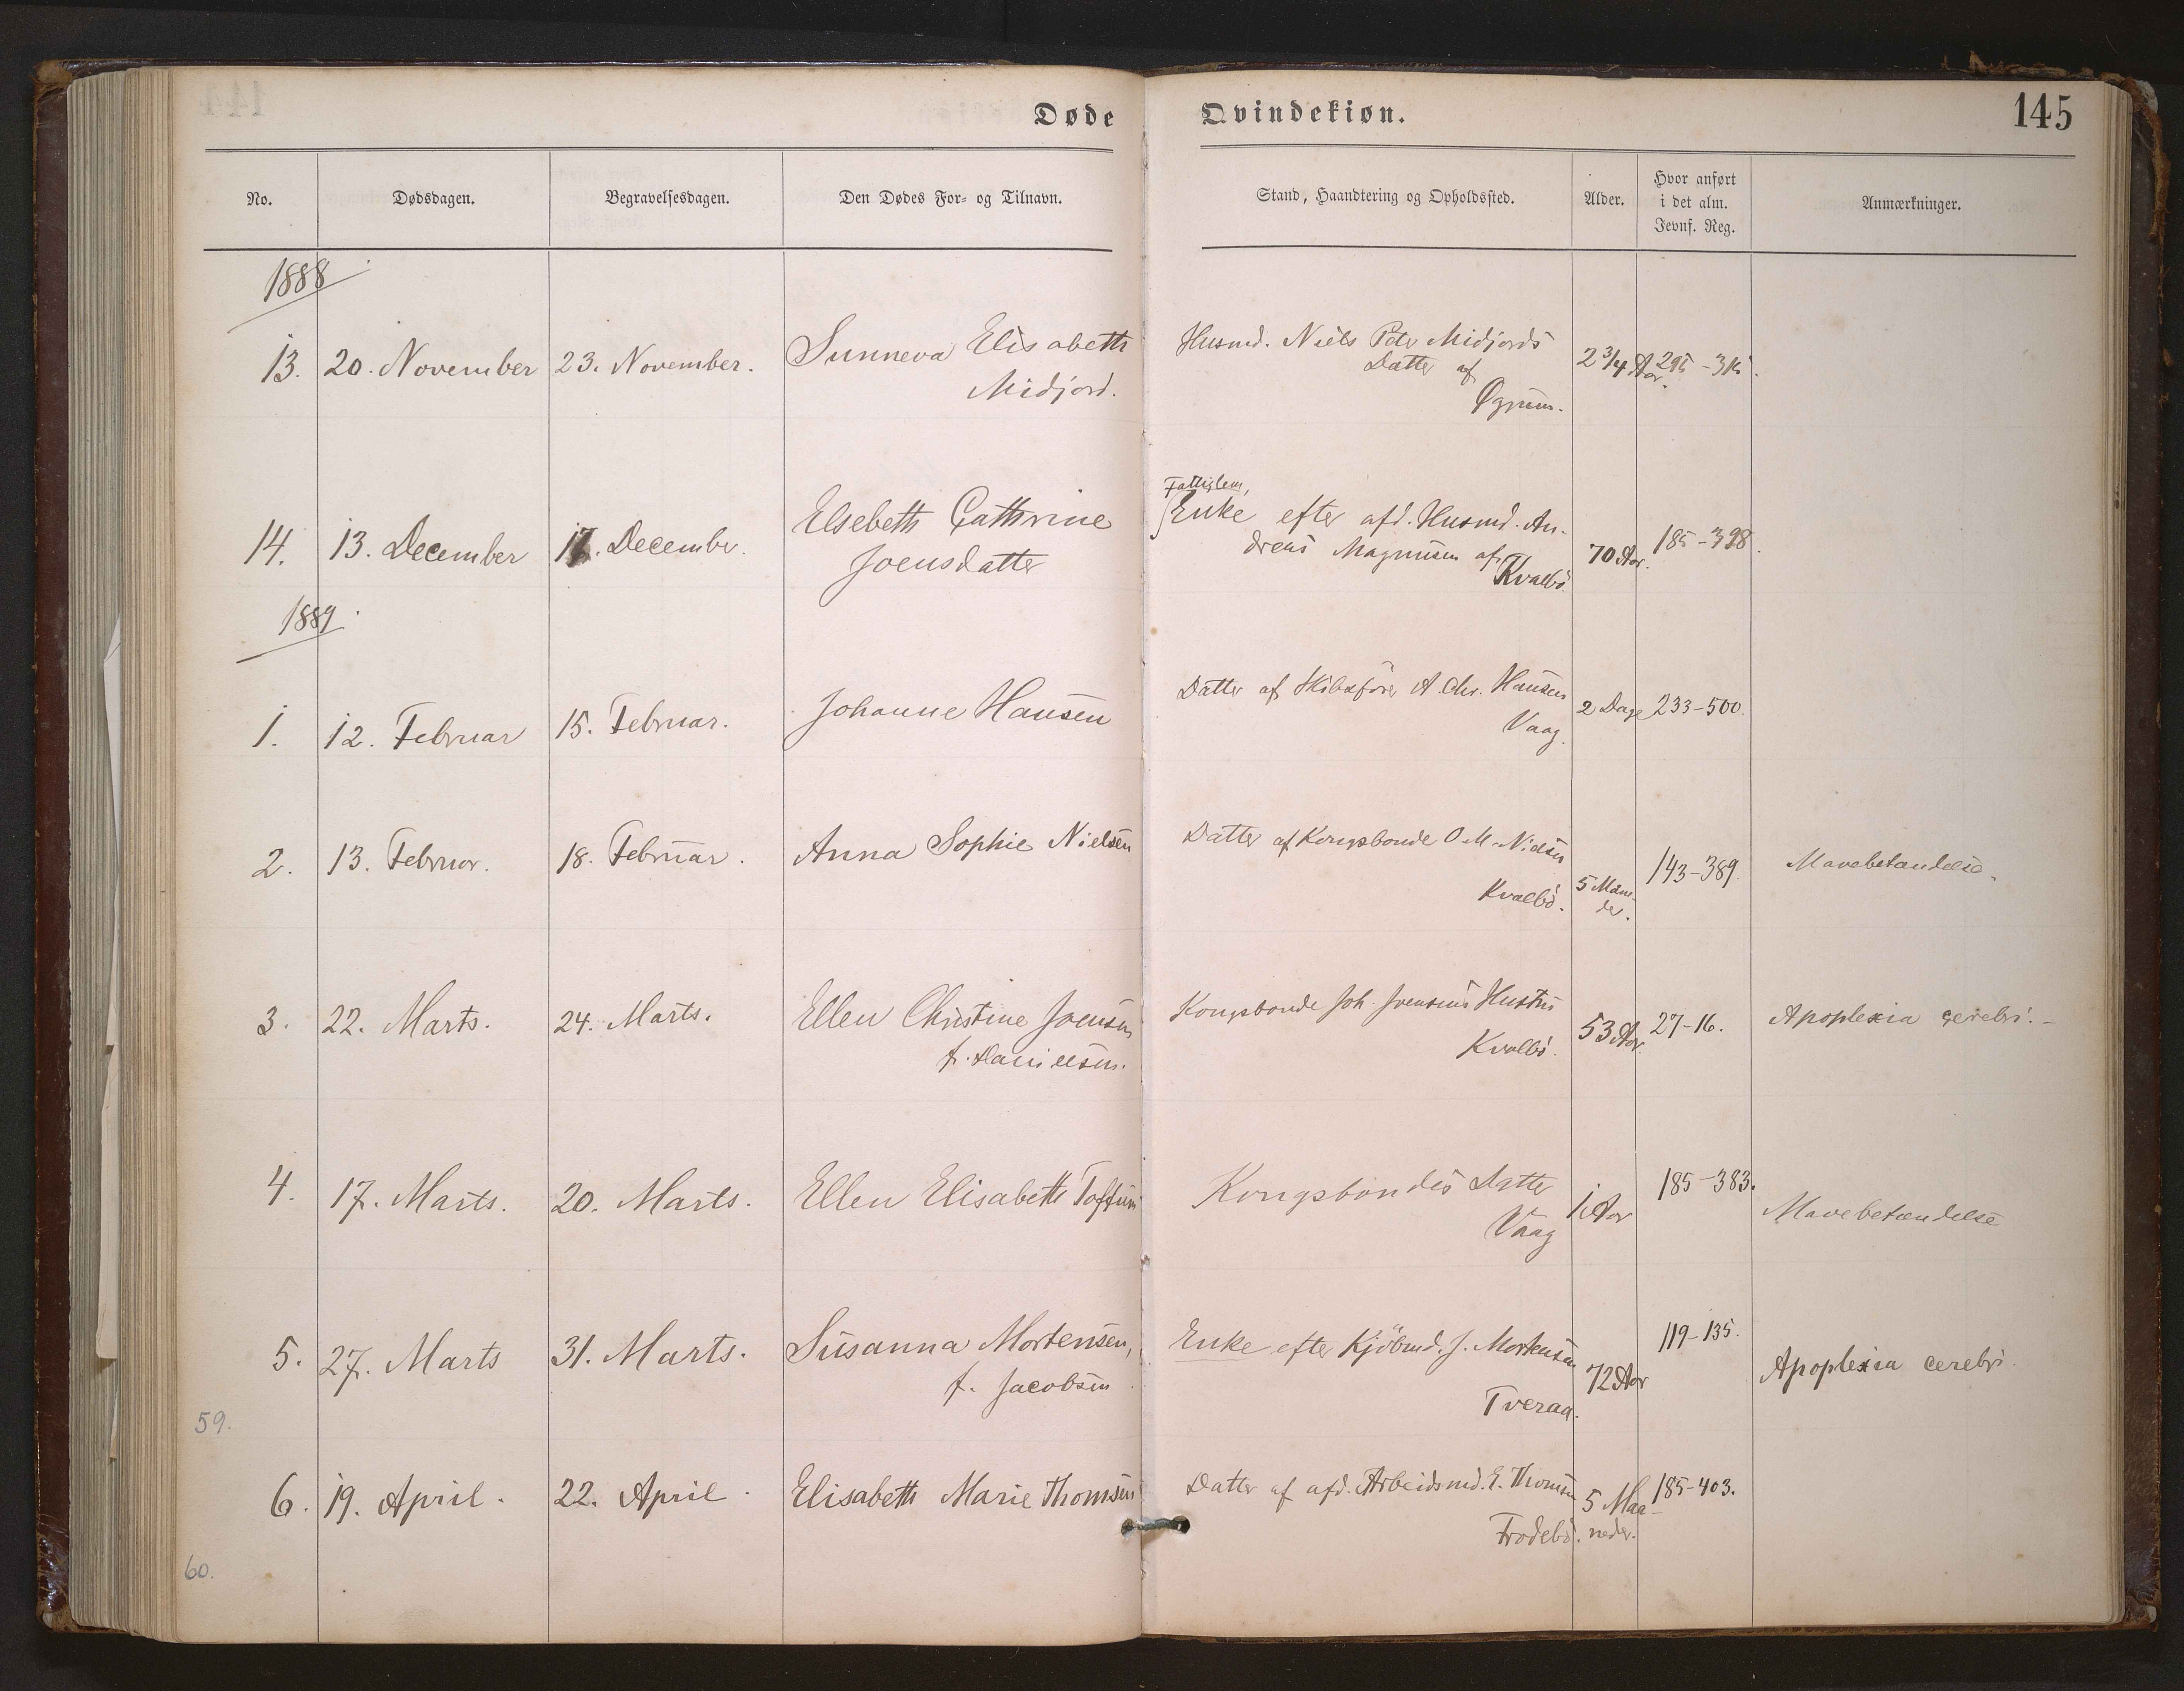 Døde Qvindekiøn. 145
No. Dødsdagen. Begravelsesdagen. Den Dødes For- og Tilnavn. Stand, Haandtering og Opholdssted. Alder. Hvor anført i det alm. Jevnf. Reg. Anmærkninger.
1888
13. 20. November 23. November. Sunneva Elisabeth Husmd. Niels Peter Midjords 2 3/4 Aar. 295-315.
Midjord. Datter af
Øgrum.
Fattiglem,
14. 13. December 17. December. Elsebeth Cathrine Enke efter afd. Husmd. An- 70 Aar. 185-398.
Joensdatter dreas Magnusen af
Kvalbö
1889
1. 12. Februar 15. Februar. Johanne Hansen Datter af Skibsförer A. Chr. Hansen 2 Dage 233-500.
Vaag.
2. 13. Februar. 18. Februar. Anna Sophie Nielsen Datter af Kongsbonde O M. Nielsen 5 Maane- 143-389. Mavebetændelse.
Kvalbö. der.
3. 22. Marts. 24. Marts. Ellen Christine Joensen Kongsbonde Joh. Joensens Hustru 53 Aar. 27-16. Apoplexia cerebri.-
f. Danielsen. Kvalbö.
4. 17. Marts. 20. Marts. Ellen Elisabeth Toftum Kongsbondes Datter 1 Aar 185-383. Mavebetændelse
Vaag
5. 27. Marts 31. Marts. Susanna Mortensen, Enke efter Kjöbmd. J. Mortensen 72 Aar 119-135. Apoplexia cerebri.
f. Jacobsen Tveraa.
59.
6. 19. April. 22. April. Elisabeth Marie Thomsen Datter af afd. Arbeidsmd. E. Thomsen 5 Maa- 185-403.
Frodebö. neder.
60.